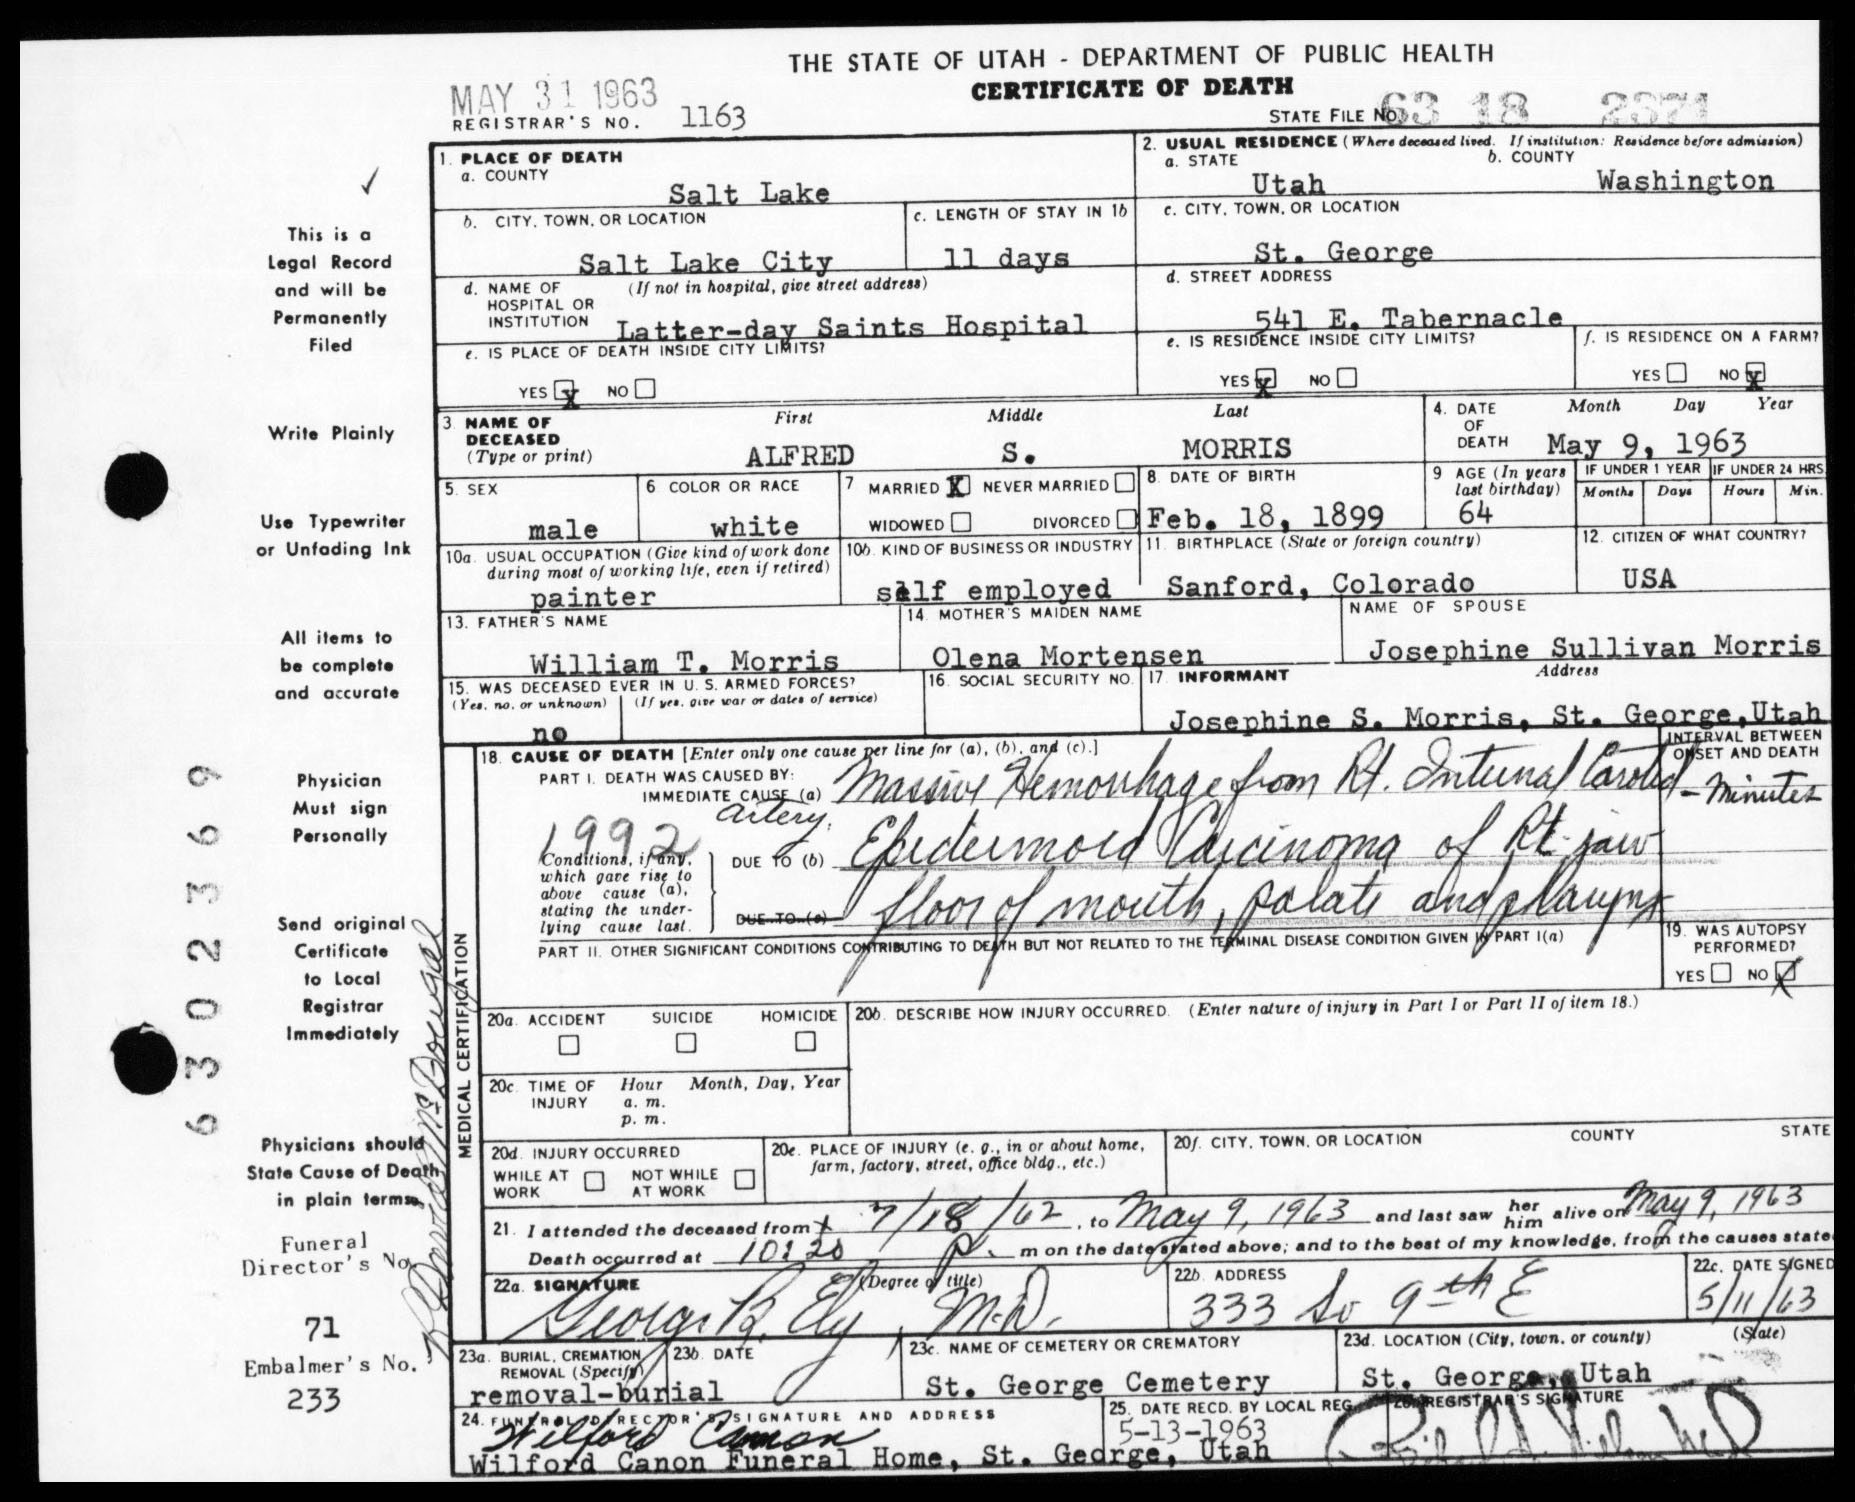 THE STATE OF UTAH - DEPARTMENT OF PUBLIC HEALTH
CERTIFICATE OF DEATH
MAY 31 1963
REGISTRAR'S NO. 1163
STATE FILE NO. 63 18 2371
This is a
Legal Record
and will be
Permanently
Filed
Write Plainly
Use Typewriter
or Unfading Ink
All items to
be complete
and accurate
Physician
Must sign
Personally
Send original
Certificate
to Local
Registrar
Immediately
Physicians should
State Cause of Death
in plain terms.
Funeral
Director's No.
71
Embalmer's No.
233
6302369
1. PLACE OF DEATH
a. COUNTY
Salt Lake
b. CITY, TOWN, OR LOCATION
Salt Lake City
c. LENGTH OF STAY IN 1b
11 days
d. NAME OF HOSPITAL OR INSTITUTION (If not in hospital, give street address)
Latter-day Saints Hospital
e. IS PLACE OF DEATH INSIDE CITY LIMITS?
YES X NO
2. USUAL RESIDENCE (Where deceased lived. If institution: Residence before admission)
a. STATE
Utah
b. COUNTY
Washington
c. CITY, TOWN, OR LOCATION
St. George
d. STREET ADDRESS
541 E. Tabernacle
e. IS RESIDENCE INSIDE CITY LIMITS?
YES X NO
f. IS RESIDENCE ON A FARM?
YES NO X
3 NAME OF DECEASED (Type or print)
First Middle Last
ALFRED S. MORRIS
4. DATE OF DEATH
Month Day Year
May 9, 1963
5. SEX
male
6 COLOR OR RACE
white
7 MARRIED X NEVER MARRIED
WIDOWED DIVORCED
8. DATE OF BIRTH
Feb. 18, 1899
9 AGE (In years last birthday)
64
IF UNDER 1 YEAR
Months Days
IF UNDER 24 HRS.
Hours Min.
10a. USUAL OCCUPATION (Give kind of work done during most of working life, even if retired)
painter
10b. KIND OF BUSINESS OR INDUSTRY
self employed
11. BIRTHPLACE (State or foreign country)
Sanford, Colorado
12. CITIZEN OF WHAT COUNTRY?
USA
13. FATHER'S NAME
William T. Morris
14. MOTHER'S MAIDEN NAME
Olena Mortensen
NAME OF SPOUSE
Josephine Sullivan Morris
15. WAS DECEASED EVER IN U. S. ARMED FORCES?
(Yes, no, or unknown) (If yes, give war or dates of service)
no
16. SOCIAL SECURITY NO.
17. INFORMANT Address
Josephine S. Morris, St. George, Utah
MEDICAL CERTIFICATION
18. CAUSE OF DEATH [Enter only one cause per line for (a), (b), and (c).]
INTERVAL BETWEEN ONSET AND DEATH
PART I. DEATH WAS CAUSED BY:
IMMEDIATE CAUSE (a) Massive Hemorrhage from Rt. Internal Carotid - minutes
artery.
1992
Conditions, if any, which gave rise to above cause (a), stating the under-lying cause last.
DUE TO (b) Epidermoid Carcinoma of Rt jaw
DUE TO (c) floor of mouth, palate and pharynx
PART II. OTHER SIGNIFICANT CONDITIONS CONTRIBUTING TO DEATH BUT NOT RELATED TO THE TERMINAL DISEASE CONDITION GIVEN IN PART I(a)
19. WAS AUTOPSY PERFORMED?
YES NO X
20a. ACCIDENT SUICIDE HOMICIDE
20b. DESCRIBE HOW INJURY OCCURRED. (Enter nature of injury in Part I or Part II of item 18.)
20c. TIME OF INJURY Hour Month, Day, Year
a. m.
p. m.
20d. INJURY OCCURRED
WHILE AT WORK NOT WHILE AT WORK
20e. PLACE OF INJURY (e. g., in or about home, farm, factory, street, office bldg., etc.)
20f. CITY, TOWN, OR LOCATION COUNTY STATE
21. I attended the deceased from 7/18/62, to May 9, 1963 and last saw her him alive on May 9, 1963
Death occurred at 10:20 p. m on the date stated above; and to the best of my knowledge, from the causes state
22a. SIGNATURE (Degree or title)
George R. Ely, M.D.
22b. ADDRESS
333 So 9th E
22c. DATE SIGNED
5/11/63
23a. BURIAL, CREMATION REMOVAL (Specify)
removal-burial
23b. DATE
23c. NAME OF CEMETERY OR CREMATORY
St. George Cemetery
23d. LOCATION (City, town, or county) (State)
St. George, Utah
24. FUNERAL DIRECTOR'S SIGNATURE AND ADDRESS
Wilford Canon
Wilford Canon Funeral Home, St. George, Utah
25. DATE RECD. BY LOCAL REG.
5-13-1963
26. REGISTRAR'S SIGNATURE